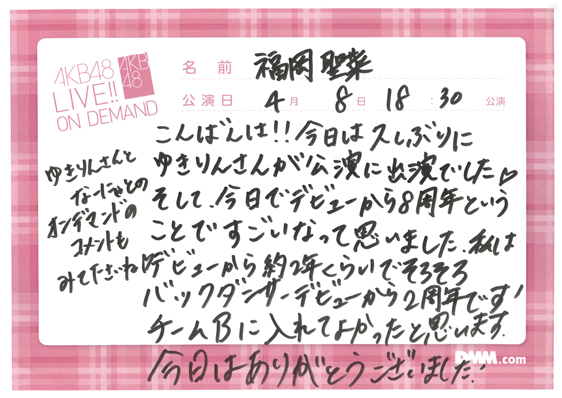 AKB48
LIVE!!
ON DEMAND
AKB
48
名前 福岡聖菜
公演日 4月8日 18:30 公演
こんばんは!!今日は久しぶりに
ゆきりんさんが公演に出演でした♡
そして、今日でデビューから8周年という
ことですごいなって思いました。私は
デビューから約2年くらいでそろそろ
バックダンサーデビューから2周年です!
チームBに入れてよかったと思います。
今日はありがとうございました!
ゆきりんさんと
なーにゃとの
オンデマンドの
コメントも
みてださいね!
DMM.com